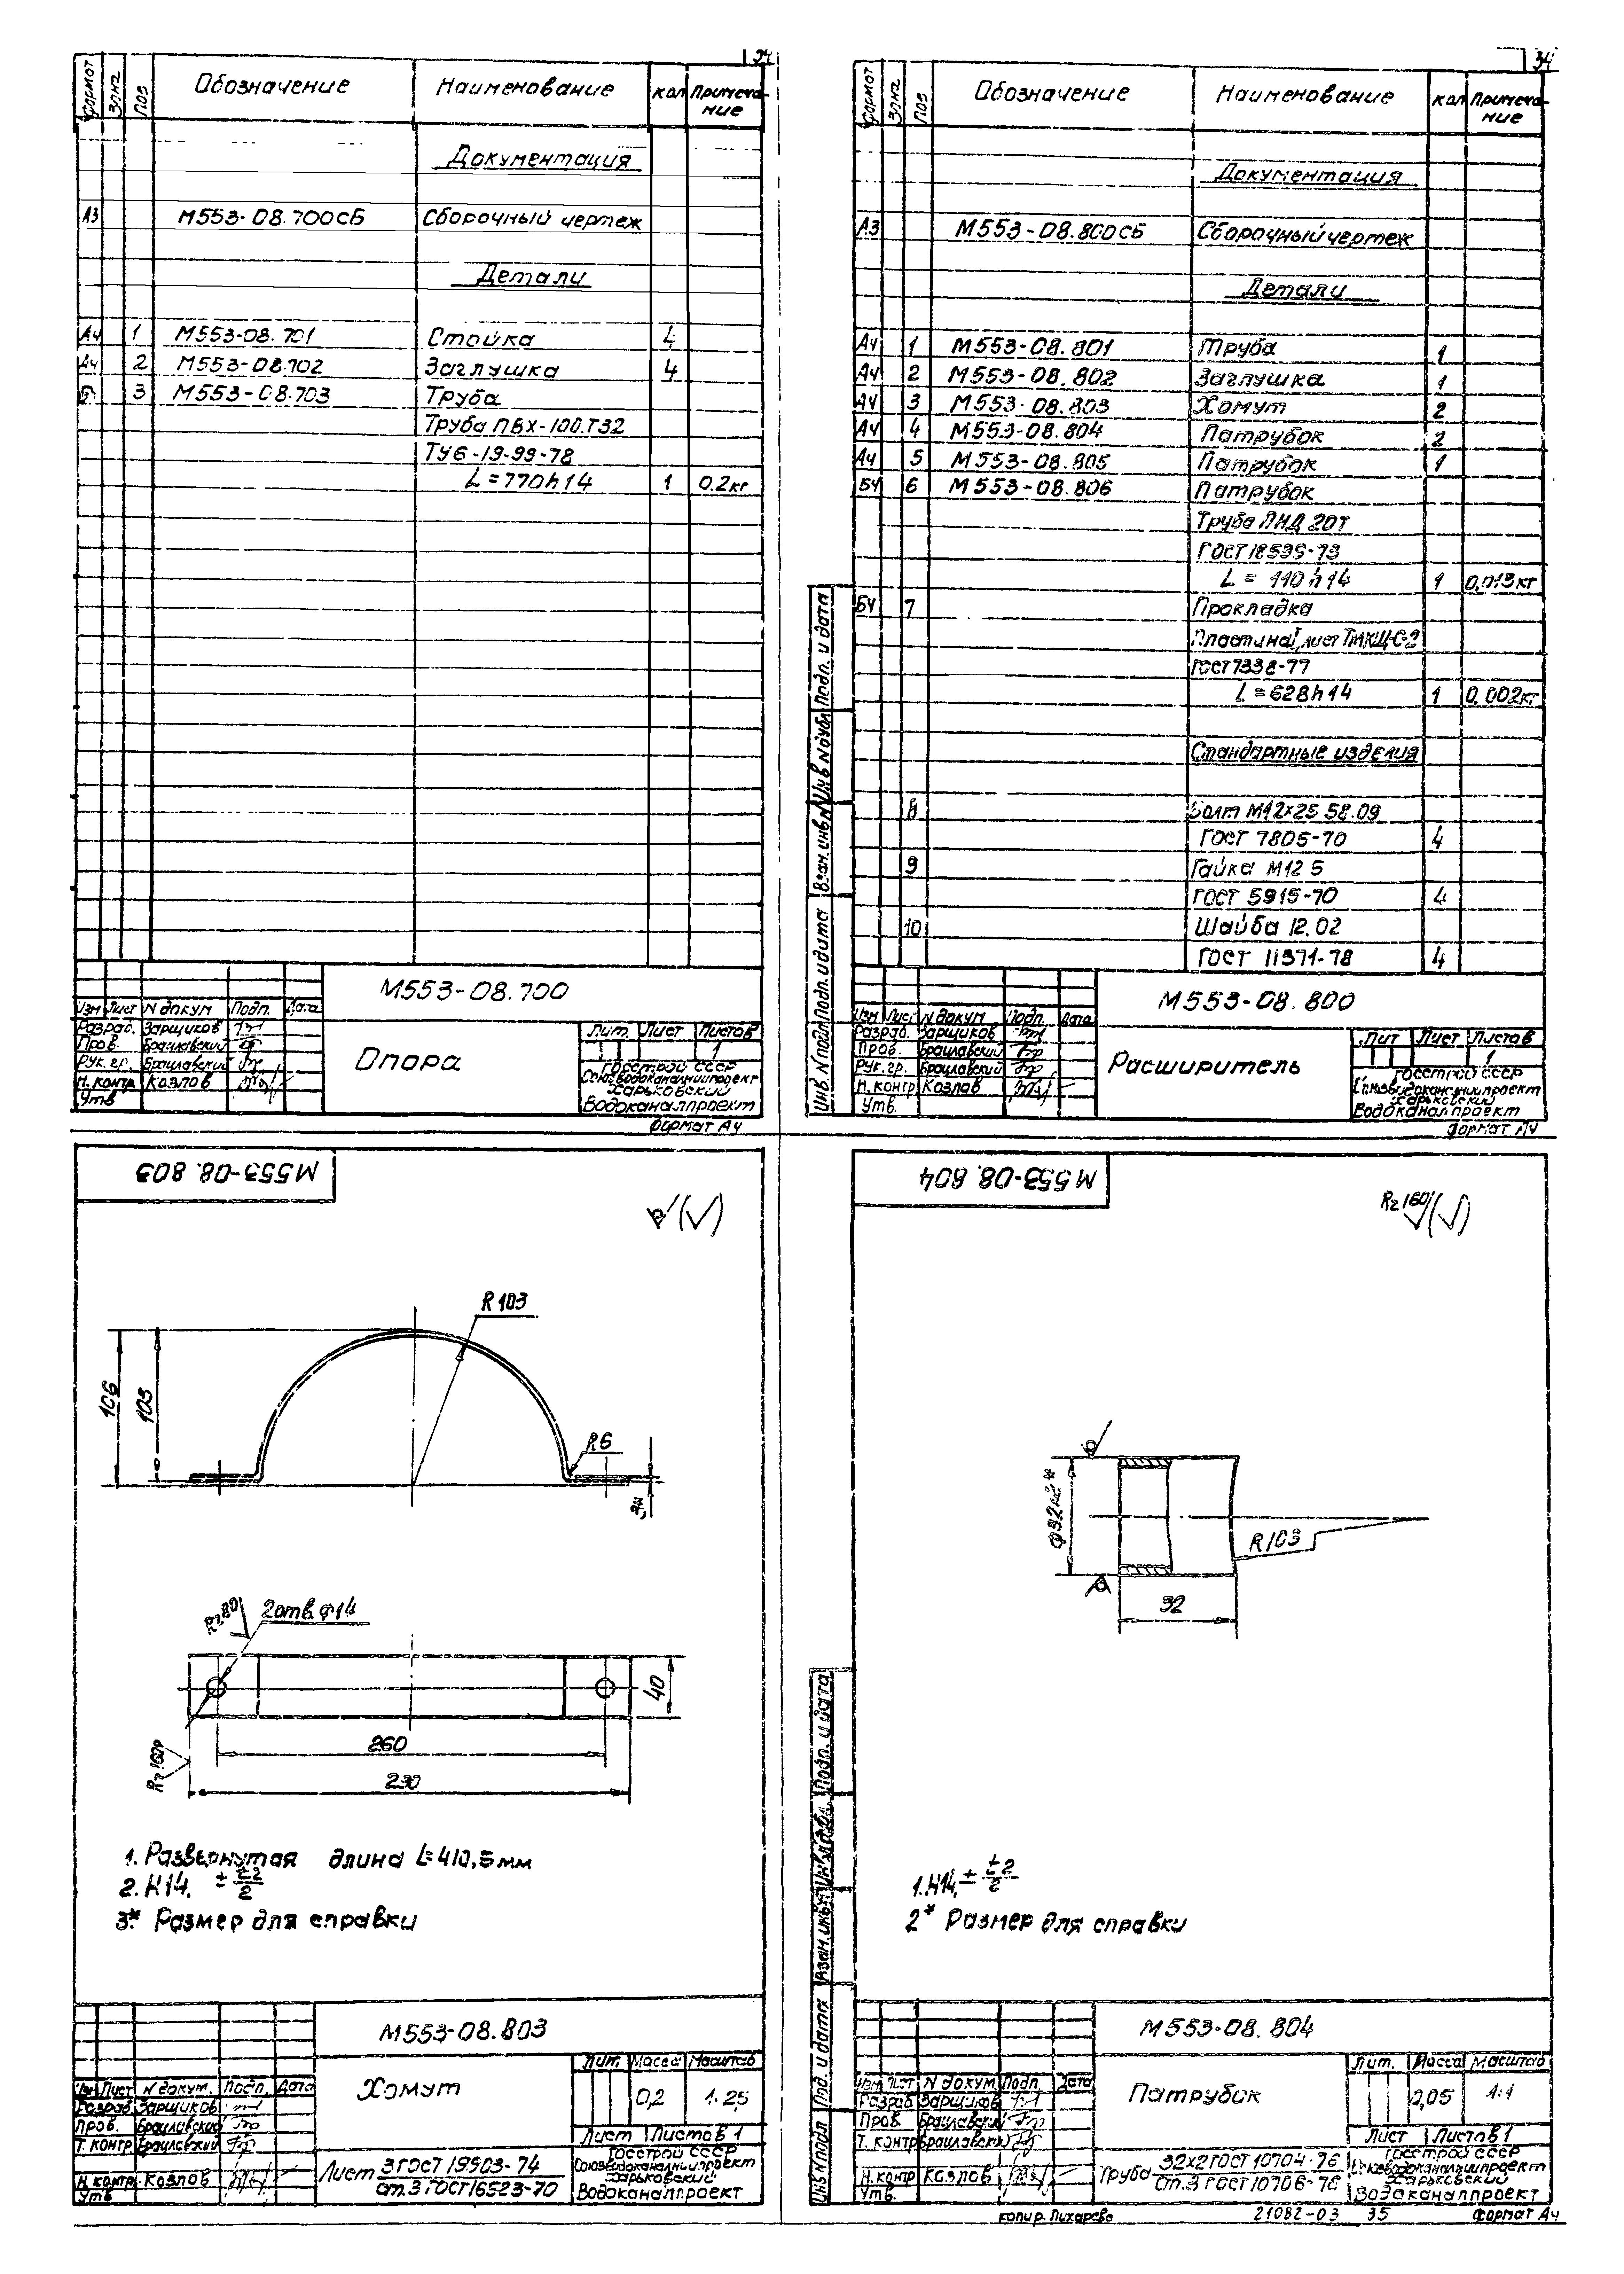 34
Формат Зона Поз Обозначение Наименование Кол Примеча-
ние
Документация
А3 М553-08.700СБ Сборочный чертеж
Детали
А4 1 М553-08.701 Стойка 4
А4 2 М553-08.702 Заглушка 4
БЧ 3 М553-08.703 Труба
Труба ПВХ-100.Т32
ТУ6-19-99-78
L=770h14 1 0.2кг
М553-08.700
Изм Лист N докум Подп. Дата
Разраб. Зарщиков
Пров. Браилавский
Рук.гр. Браилавский
Н.контр Козлов
Утв
Опора
Лит. Лист Листов
1
Госстрой СССР
Союзводоканалниипроект
Харьковский
Водоканалпроект
Формат А4
34
Формат Зона Поз Обозначение Наименование Кол Примеча-
ние
Документация
А3 М553-08.800СБ Сборочный чертеж
Детали
А4 1 М553-08.801 Труба 1
А4 2 М553-08.802 Заглушка 1
А4 3 М553-08.803 Хомут 2
А4 4 М553-08.804 Патрубок 2
А4 5 М553-08.805 Патрубок 1
БЧ 6 М553-08.806 Патрубок
Труба ПНД 20Т
ГОСТ 18599-73
L = 110h14 1 0,013кг
БЧ 7 Прокладка
Пластина I, лист ТМКЩ-С-2
ГОСТ 7338-77
L=628h14 1 0,002кг
Стандартные изделия
8 Болт М12х25 58.09
ГОСТ 7805-70 4
9 Гайка М12 5
ГОСТ 5915-70 4
10 Шайба 12.02
ГОСТ 11371-78 4
Инв N подл Подп. и дата Взам. инв N Инв N дубл Подп. и дата
М553-08.800
Изм Лист N докум Подп. Дата
Разраб. Зарщиков
Пров. Браилавский
Рук.гр. Браилавский
Н.контр Козлов
Утв.
Расширитель
Лит Лист Листов
1
Госстрой СССР
Союзводоканалниипроект
Харьковский
Водоканалпроект
Формат А4
М553-08.803
R103
106
103
R6
3*
Rz80
2отв.ф14
40
260
290
Rz160
1. Развернутая длина L=410,5мм
2. H14, ± t2/2
3* Размер для справки
М553-08.803
Изм Лист N докум. Подп. Дата
Разраб Зарщиков
Пров. Браилавский
Т.контр Браилавский
Н.контр. Козлов
Утв
Хомут
Лит. Масса Масштаб
0,2 1:2,5
Лист Листов 1
Лист 3 ГОСТ 19903-74
Ст.3 ГОСТ 16523-70
Госстрой СССР
Союзводоканалниипроект
Харьковский
Водоканалпроект
М553-08.804
Rz160
R103
32
1. H14, ± t2/2
2* Размер для справки
Инв N подл Под. и дата Взам. инв N Инв N дубл. Подп. и дата
М553-08.804
Изм Лист N докум. Подп. Дата
Разраб Зарщиков
Пров Браилавский
Т.контр Браилавский
Н.контр Козлов
Утв.
Патрубок
Лит. Масса Масштаб
0,05 1:1
Лист Листов 1
Труба 32х2 ГОСТ 10704-76
Ст.3 ГОСТ 10706-76
Госстрой СССР
Союзводоканалниипроект
Харьковский
Водоканалпроект
копир. Лихарева 21082-03 35 Формат А4